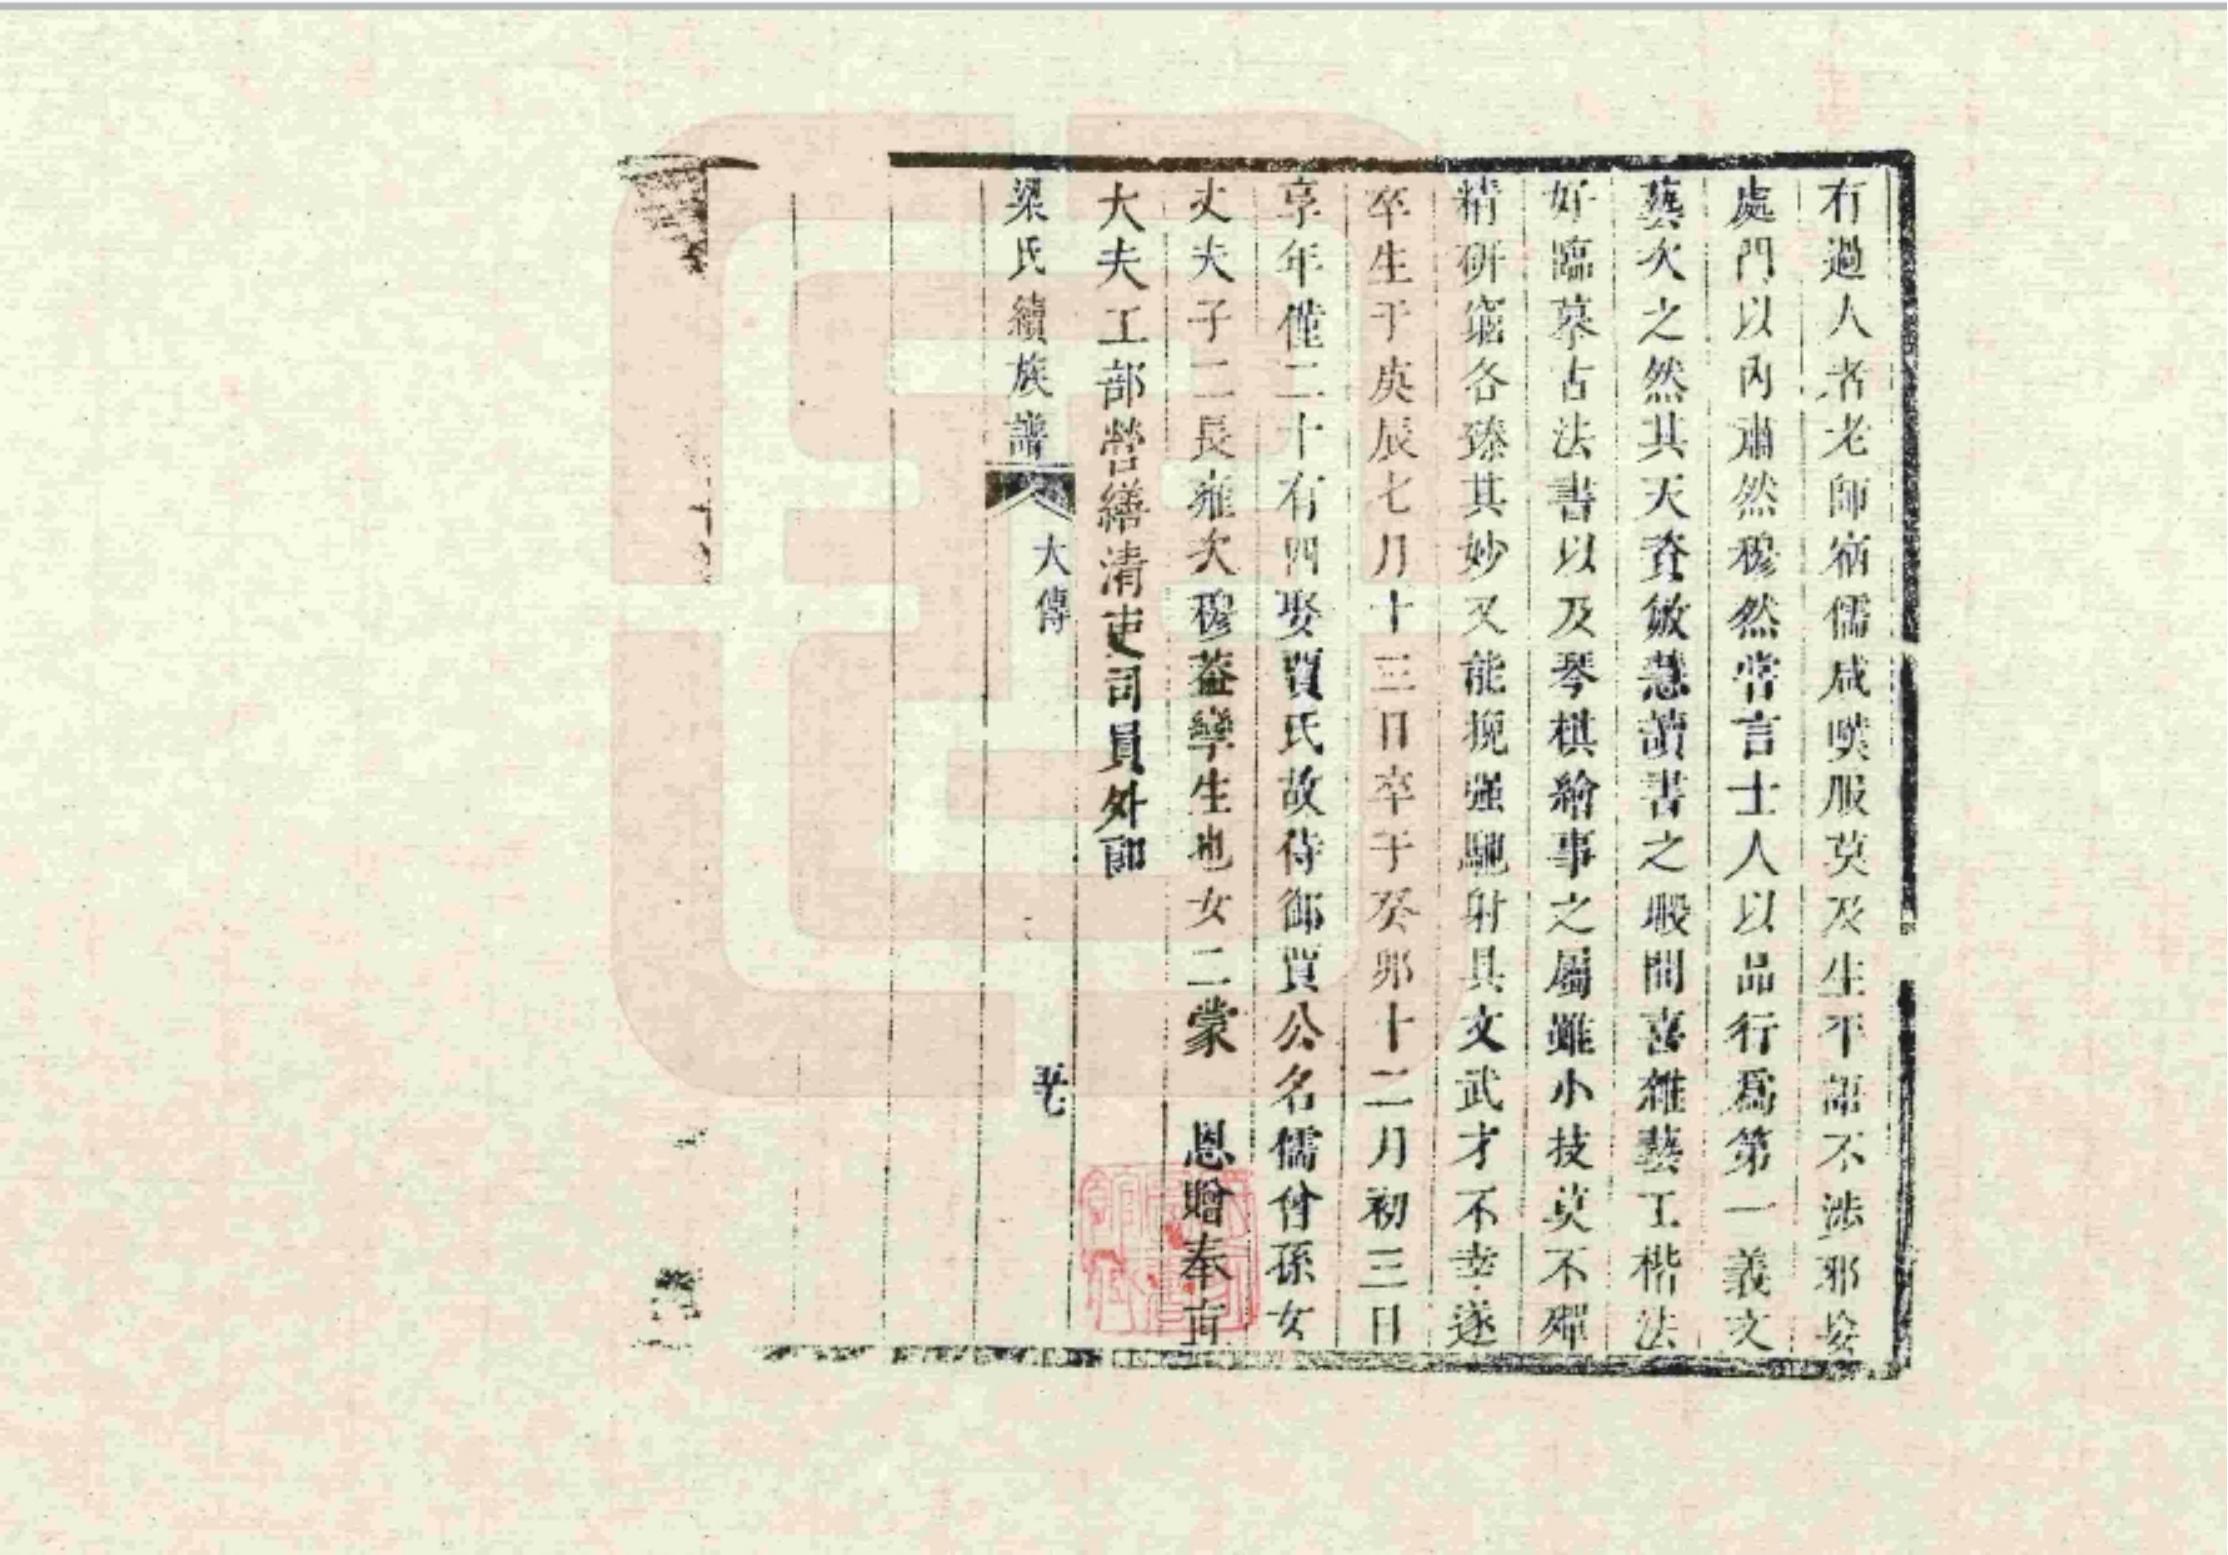 有過人者老師宿儒咸嘆服莫及生平語不涉邪妄
處門以內肅然穆然嘗言士人以品行爲第一義文
藝次之然其天資敏慧讀書之暇間喜雜藝工楷法
好臨摹古法書以及琴棋繪事之屬雖小技莫不殫
精研窮各臻其妙又能挽强馳射具文武才不幸遂
卒生于庚辰七月十三日卒于癸卯十二月初三日
享年僅二十有四娶賈氏故侍御賈公名儒曾孫女
丈夫子二長雍次穆葢孿生也女二蒙 恩贈奉直
大夫工部營繕清吏司員外郎
梁氏續族譜 大傳